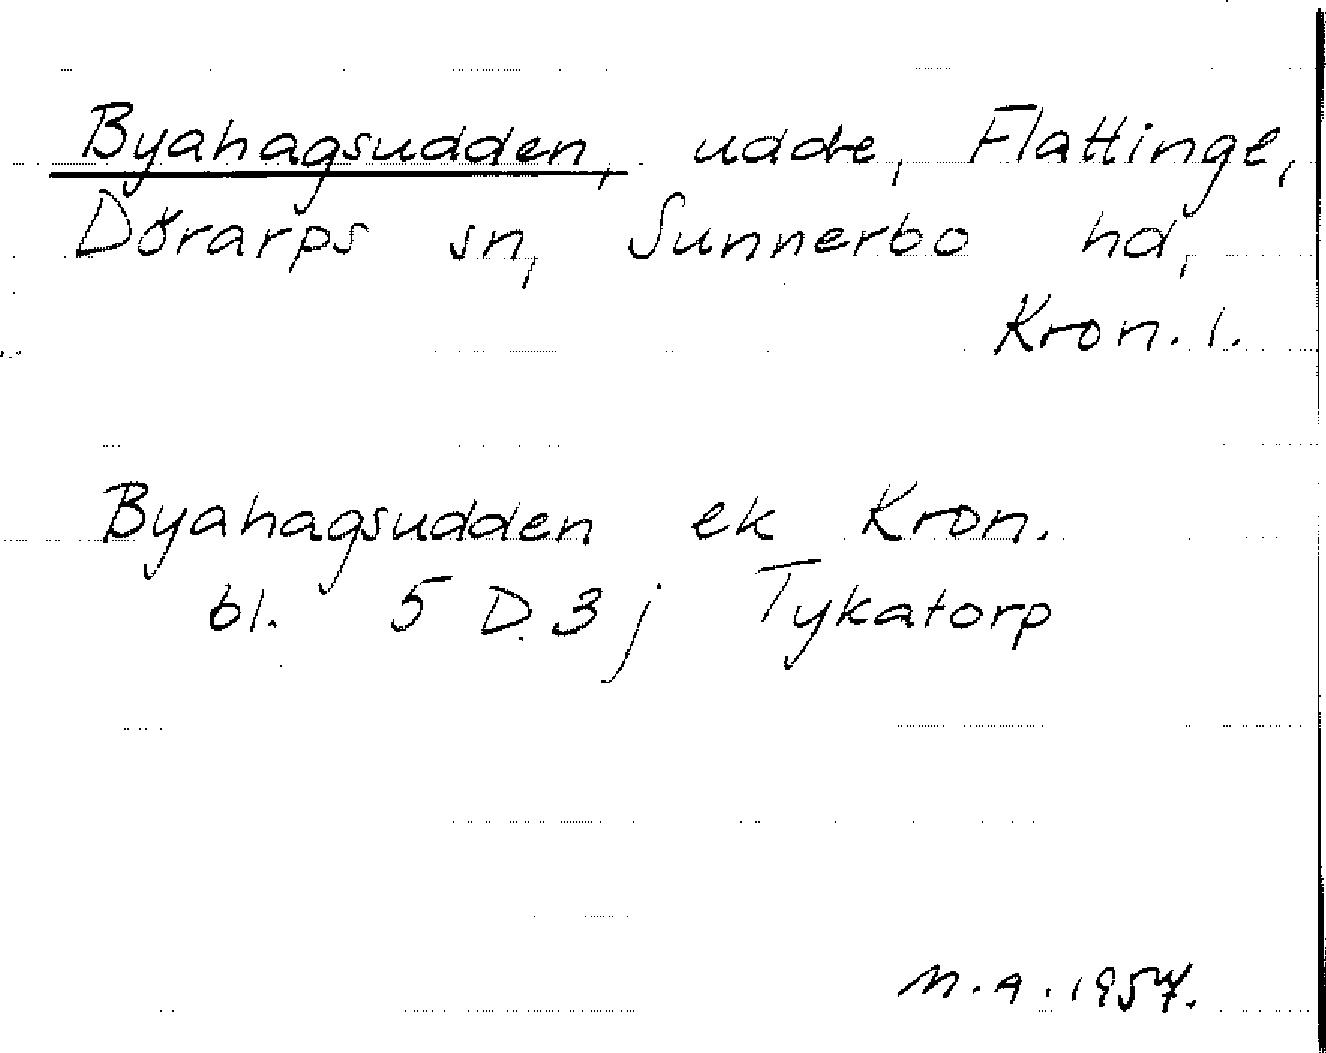 Byahagsudden, udde, Flattinge,
Dörarps sn, Sunnerbo hd,
Kron. l.
Byahagsudden ek Kron.
bl. 5 D. 3 j Tykatorp
M. A. 1957.